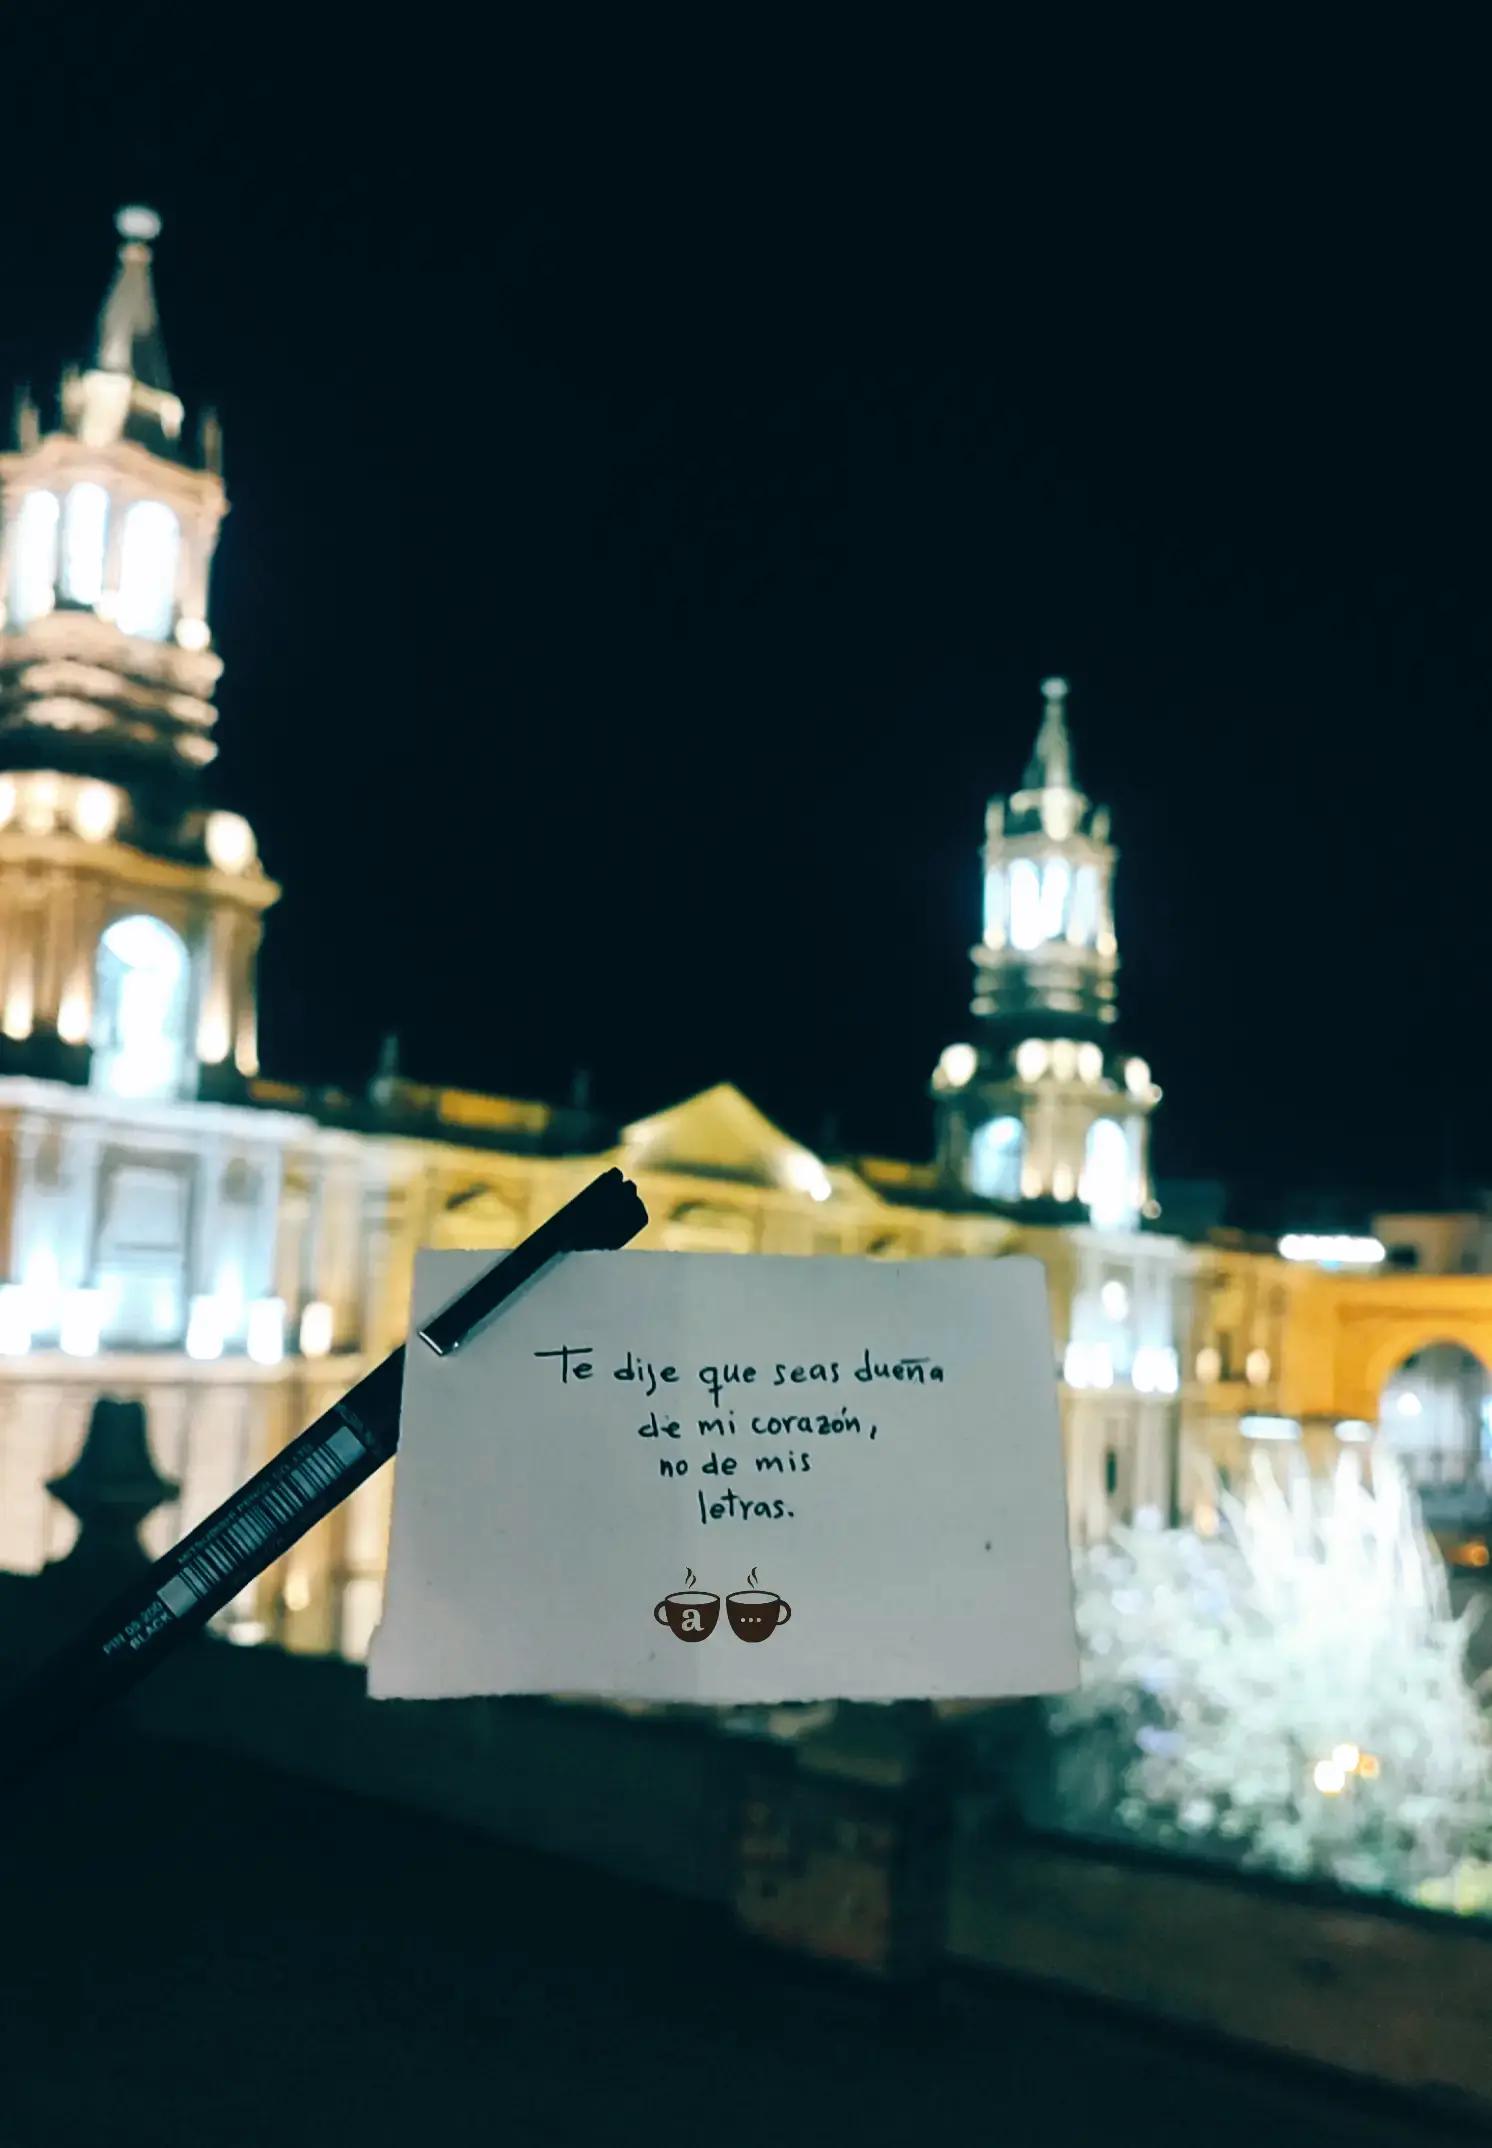 Te dije que seas dueña
de mi corazón,
no de mis
letras.
a ...
MITSUBISHI PENCIL CO., LTD.
PIN 05-200
BLACK